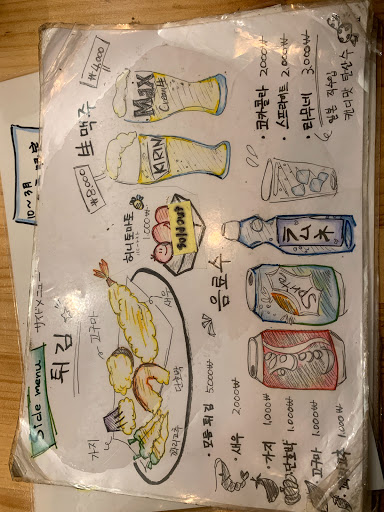 Side menu
サイドメニュー
튀김
고구마
새우
단호박
가지
꽈리고추
· 모듬 튀김 5,000₩
· 새우 2,000₩
· 가지 1,000₩
· 단호박 1,000₩
· 고구마 1,000₩
· 꽈리고추 1,000₩
생맥주
₩4,000
Max
Cream生
₩8,000
KIRIN
허니토마토
1,000₩
음료수
· 코카콜라 2,000₩
· 스프라이트 2,000₩
· 라무네 3,000₩
일본 직수입
캔디맛 탄산수
ラムネ
Sprite
Coca Cola
10~3月